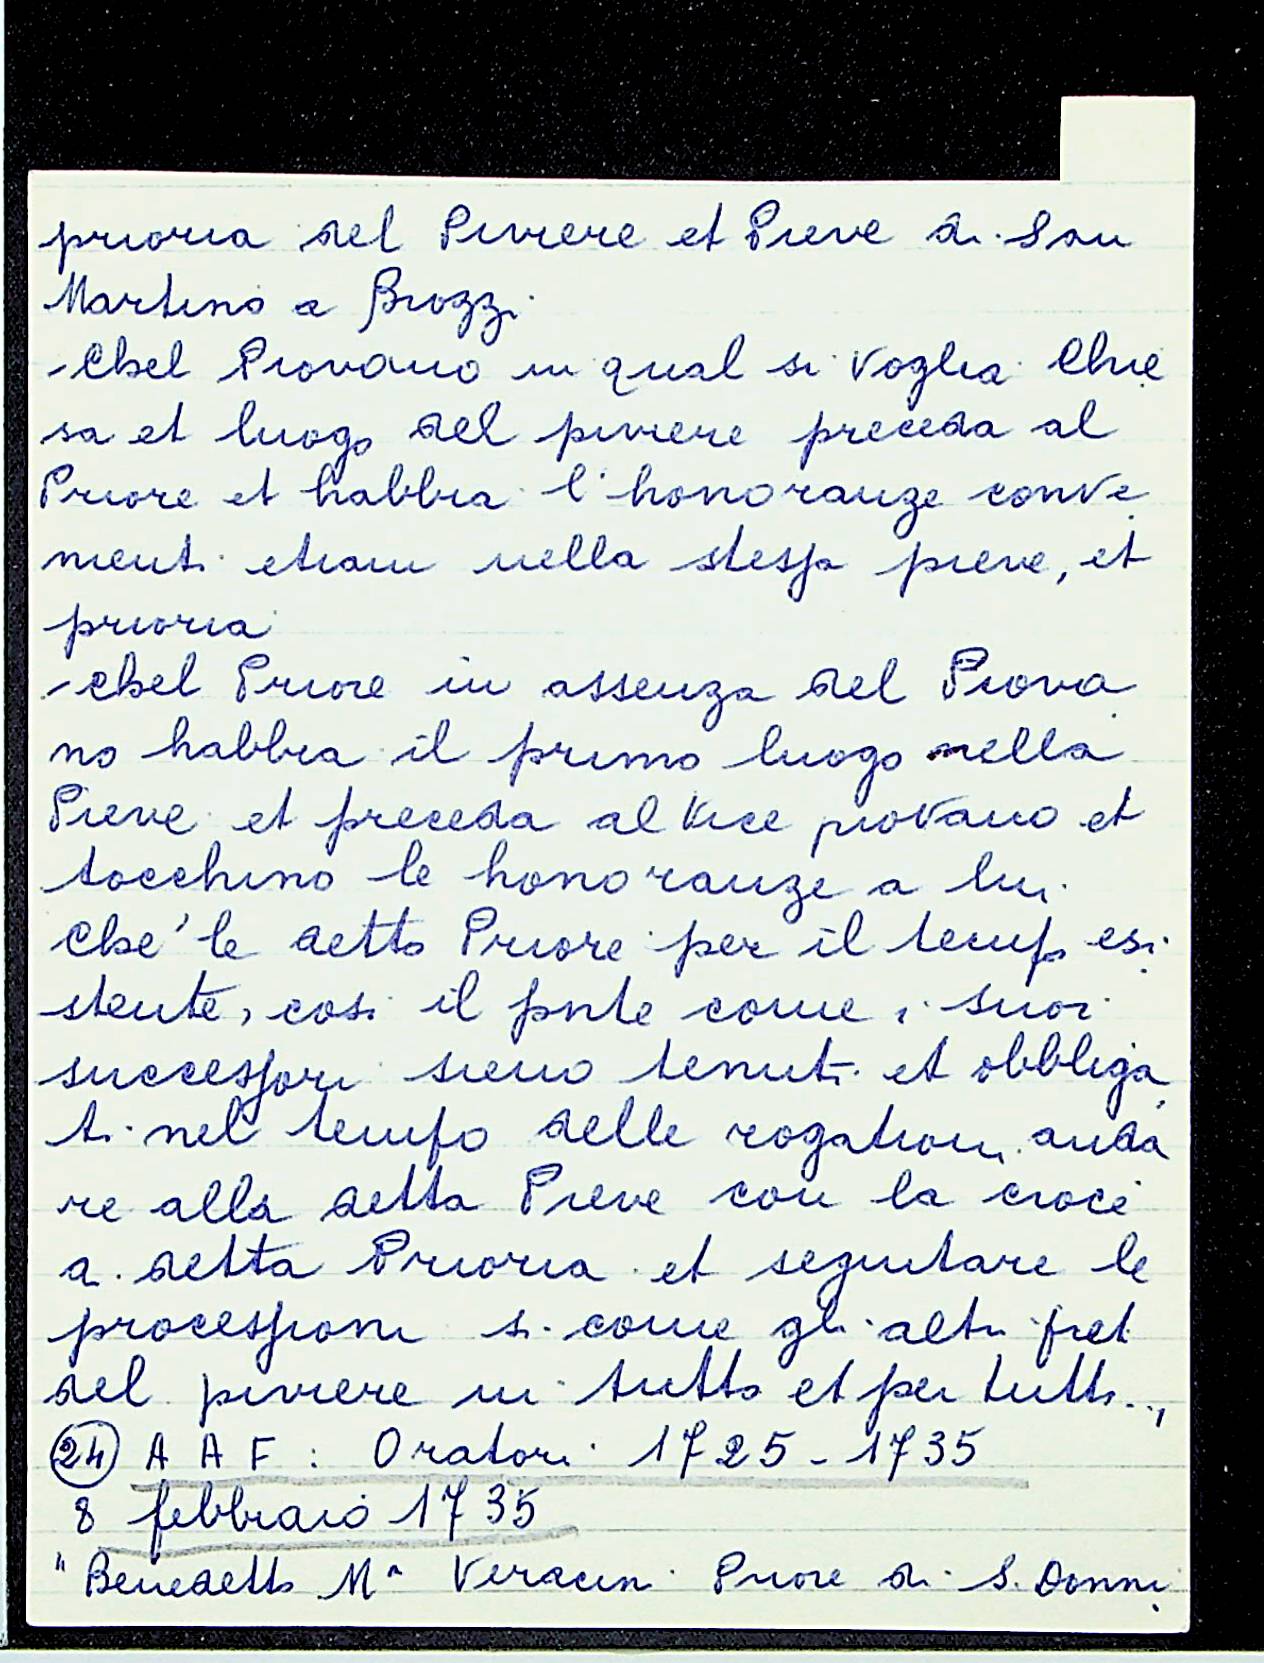 prioria del Piviere et Pieve di San
Martino a Brozzi
- Chel Piovano in qual si voglia Chie
sa et luogo del piviere preceda al
Priore et habbia l'honoranze conve
nienti etiam nella stessa pieve, et
prioria
- chel Priore in assenza del Piova
no habbia il primo luogo nella
Pieve et preceda al Vice piovano et
tocchino le honoranze a lui
Che'le detto Priore per il tempo esi
stente, così il pnte come i suoi
successori sieno tenuti et obbliga
ti nel tempo delle rogationi anda
re alla detta Pieve con la croce
a detta Prioria et seguitare le
processioni si come gli altri pret
del piviere in tutto et per tutto..,
24 A A F : Oratori 1725-1735
8 febbraio 1735
"Benedetto Mª Veracini Priore di S. Donni